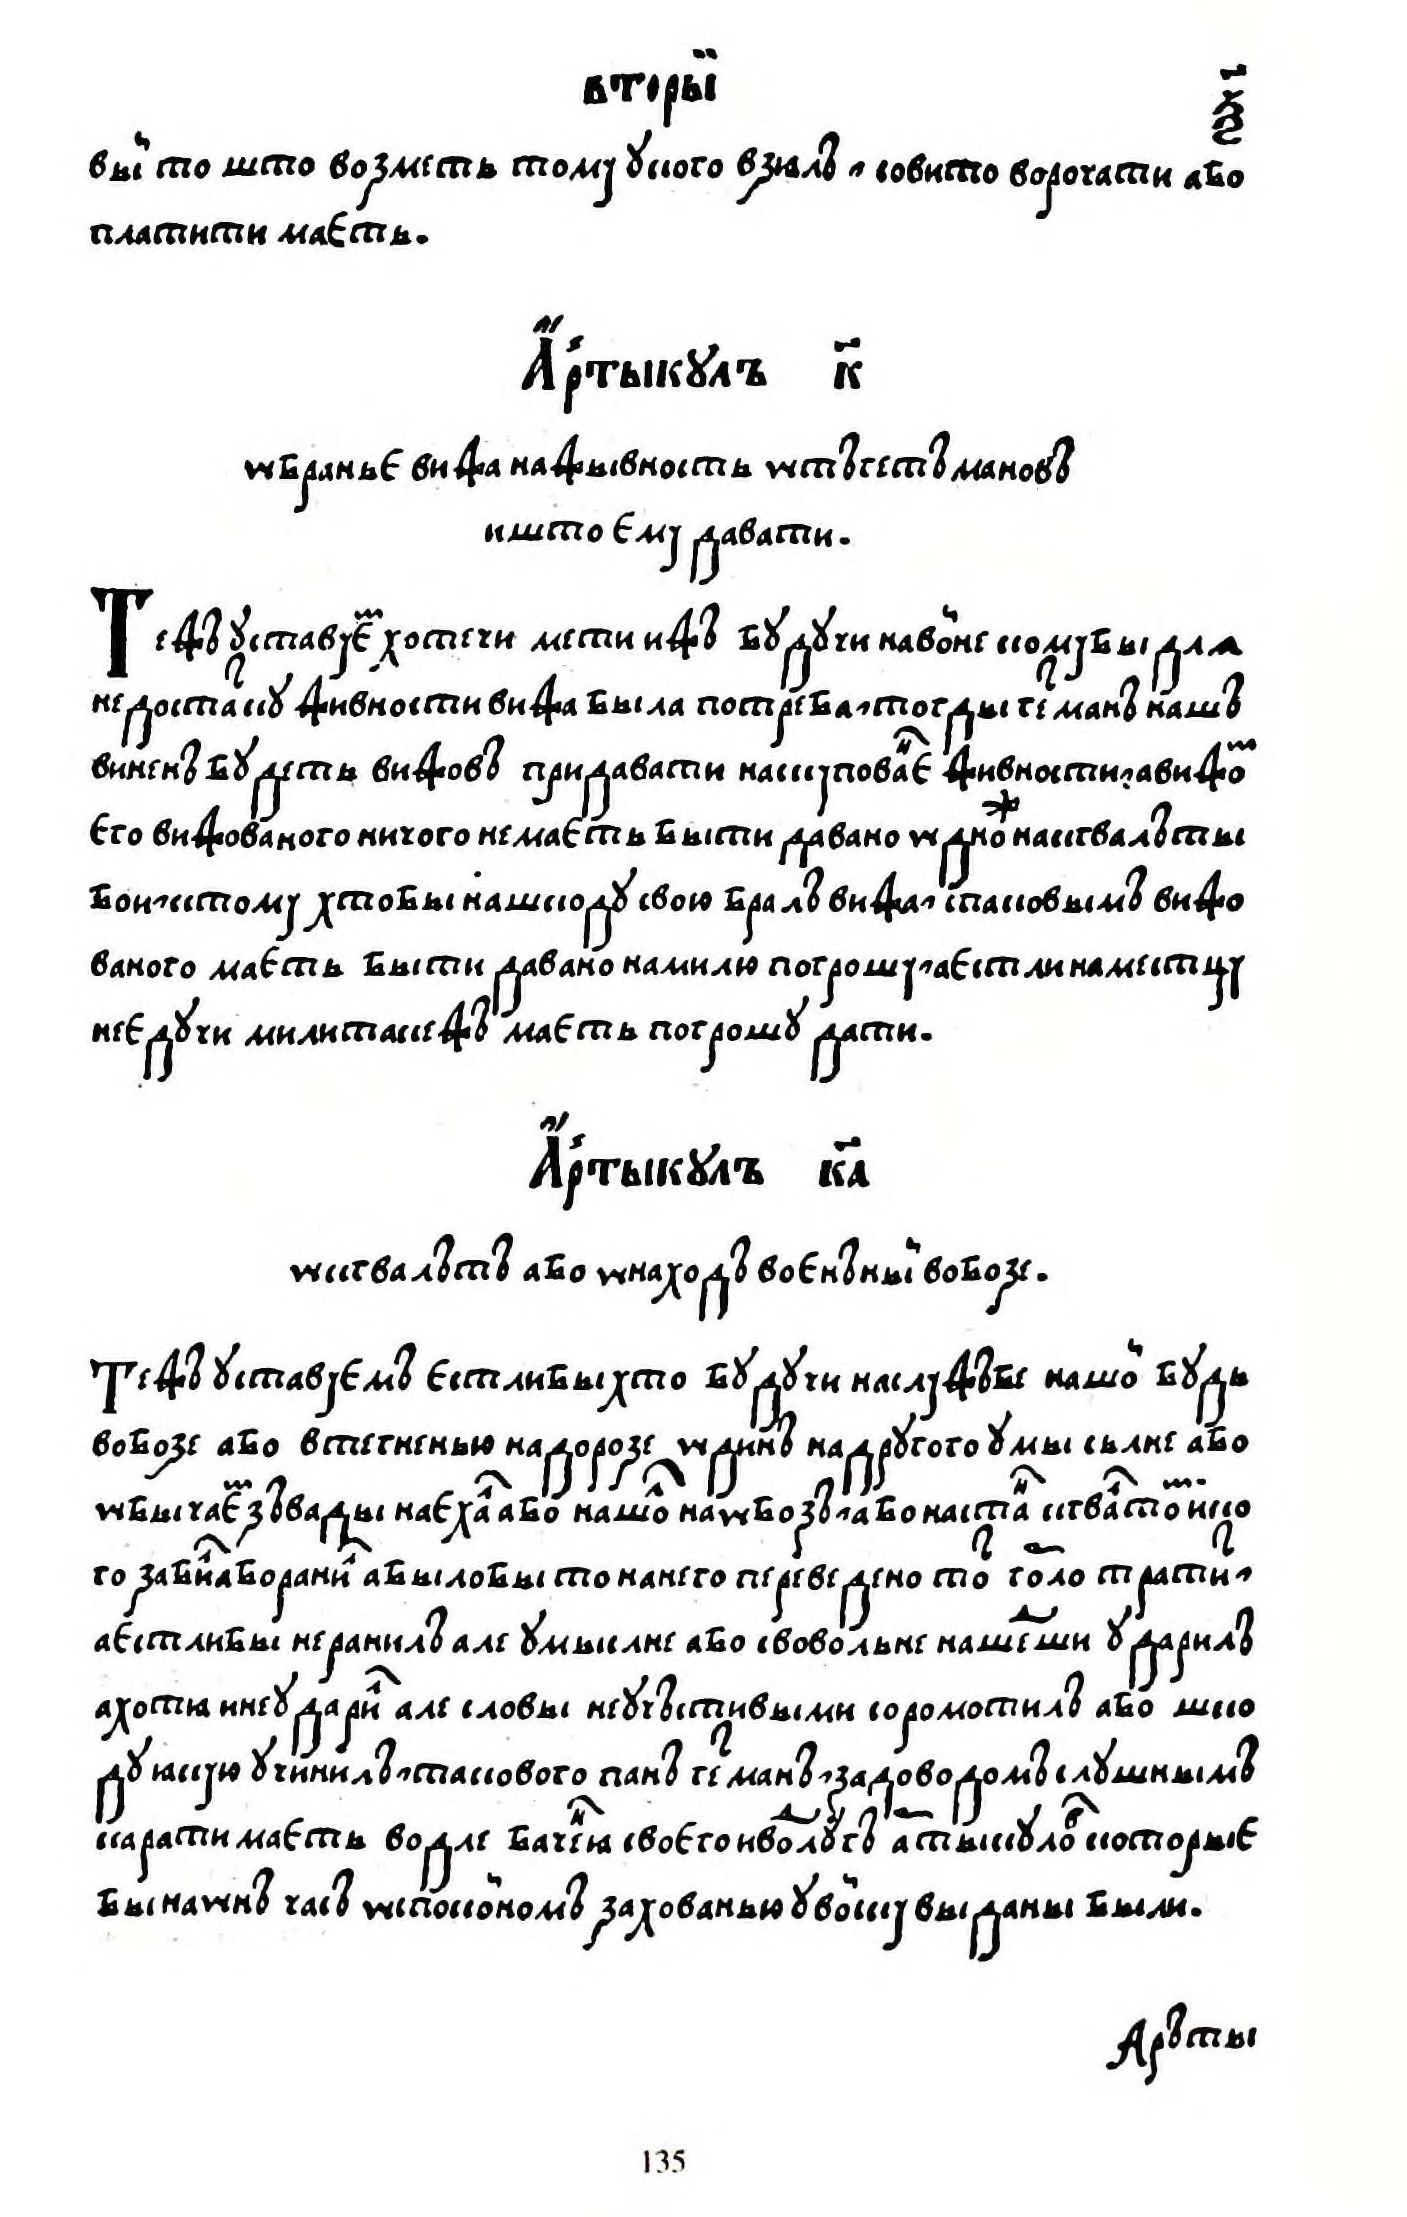 вторыи
ѯ҃з
вы̆ то што возметь тому ꙋ кого взялъ, совито ворочати або
платити маєть.
Артыкꙋлъ к҃
ѡбранье вижа на живность ѡтъ гетъмановъ
и што ему давати.
Тежъ ꙋставуєⷨ хотечи мети ижъ бꙋдꙋчи на во̆не кому бы для
недостаⷦ҇кꙋ живности вижа была потреба, тогды геⷮманъ нашъ
виненъ бꙋдеть вижовъ придавати на купова̑ⷩє живности, а вижоⷨ
єго вижованого ничого не маєть быти давано ѡдноⷤ на кгвалъты
бои, к тому хто бы на шкодꙋ свою бралъ вижа, с таковымъ вижо
ваного маєть быти давано на милю по грошу, а єстли на местцу
не єдꙋчи мили такежъ маєть по грошꙋ дати.
Артыкꙋлъ к҃а
ѡ кгвалътъ або ѡ находъ воєнъны̆ в обозе.
Тежъ ꙋставуємъ єстли бы хто бꙋдꙋчи на слꙋжъбе нашо̆ бꙋдь
в обозе або в стегненью на дорозе ѡдинъ на дрꙋгого ꙋмысьлне або
ѡбычаєⷨ зъвады наєхаⷧ або нашоⷧ на ѡбозъ, або на стаⷩ кгваⷧтоⷨ и ко
го забиⷧ або раниⷧ а было бы то на него переведено тоⷮ гоⷬло тратиⷮ,
а єстли бы не ранилъ але ꙋмыслне або свовольне нашеⷣши ꙋдарилъ
а хотя и не ꙋдариⷧ але словы неꙋчъстивыми соромотилъ або шко
дꙋ якую ꙋчинилъ, такового панъ геⷮманъ, за доводомъ слꙋшнымъ
карати маєть водле бачеⷩя своєго и воⷣлꙋгъ аⷬтыкꙋлоⷡ которыє
бы на ѡнъ часъ ѡ споко̆номъ захованью ꙋ во̆ску выданы были.
Аръты
135